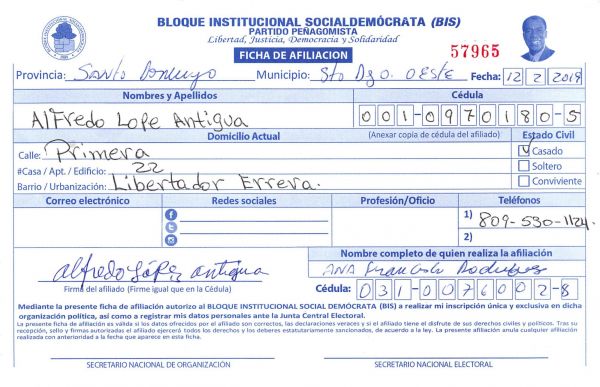 BLOQUE INSTITUCIONAL SOCIALDEMÓCRATA (BIS)
PARTIDO PEÑAGOMISTA
Libertad, Justicia, Democracia y Solidaridad
FICHA DE AFILIACION
57965
Provincia: Santo Domingo Municipio: Sto Dgo. OESTE Fecha: 12/2/2019
Nombres y Apellidos Cédula
Alfredo Lope Antigua 001-0970180-5
Domicilio Actual (Anexar copia de cédula del afiliado) Estado Civil
Calle: Primera Casado
#Casa / Apt. / Edificio: 22 Soltero
Barrio / Urbanización: Libertador Errera. Conviviente
Correo electrónico Redes sociales Profesión/Oficio Teléfonos
1) 809-530-1124
2)
Nombre completo de quien realiza la afiliación
alfredo López antigua ANA Francisco Rodríguez
Firma del afiliado (Firme igual que en la Cédula) Cédula: 031-0076002-8
Mediante la presente ficha de afiliación autorizo al BLOQUE INSTITUCIONAL SOCIAL DEMÓCRATA (BIS) a realizar mi inscripción única y exclusiva en dicha
organización política, así como a registrar mis datos personales ante la Junta Central Electoral.
La presente ficha de afiliación es válida si los datos ofrecidos por el afiliado son correctos, las declaraciones veraces y si el afiliado tiene el disfrute de sus derechos civiles y políticos. Tras su
recepción, sello y firmas autorizadas el afiliado ejercerá todos los derechos y los deberes estatutariamente sancionados, de acuerdo a la ley. La presente afiliación anula cualquier afiliación
realizada con anterioridad a la fecha que aparece en esta ficha.
SECRETARIO NACIONAL DE ORGANIZACIÓN SECRETARIO NACIONAL ELECTORAL